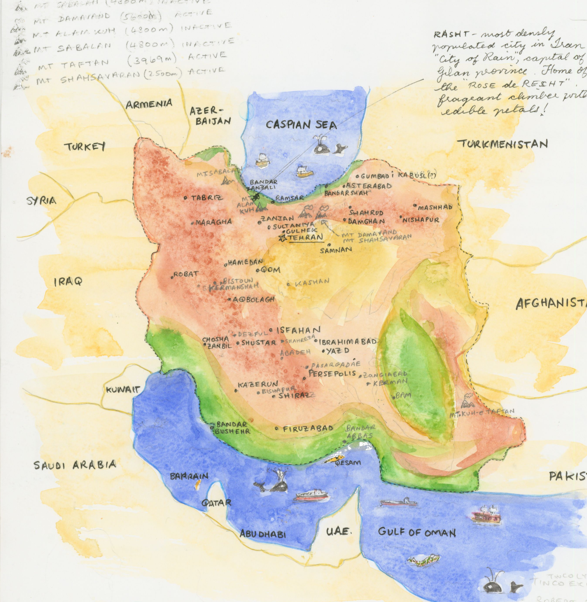 MT SABALAN (4800m) INACTIVE
MT DAMAVAND (5800m) ACTIVE
MT ALAM KUH (4800m) INACTIVE
MT SABALAN (4800m) INACTIVE
MT TAFTAN (3969m) ACTIVE
MT SHAHSAVARAN (2500m) ACTIVE
RASHT - most densly
populated city in Iran
"City of Rain", capital of
Gilan province. Home of
the "ROSE de RESHT"
fragrant climber with
edible petals!
ARMENIA
AZER-
BAIJAN
CASPIAN SEA
TURKEY
TURKMENISTAN
SYRIA
IRAQ
AFGHANISTA
KUWAIT
SAUDI ARABIA
PAKIS
BAHRAIN
QATAR
ABU DHABI
UAE.
GULF OF OMAN
TABRIZ
MARAGHA
BANDAR
ANZALI
RAMSAR
ZANJAN
SULTANIYA
GULHEK
TEHRAN
GUMBAD I KABUS
ASTERABAD
BANDAR SHAH
SHAHRUD
DAMGHAN
MASHHAD
NISHAPUR
MT DAMAVAND
MT SHAHSAVARAN
SAMNAN
HAMEDAN
QOM
ROBAT
BISTOUN
KARMANSHAH
KASHAN
AQBOLAGH
ISFAHAN
DEZFUL
CHOGHA
ZANBIL
SHUSTAR
IBRAHIMABAD
YAZD
ABADEH
PASARGADAE
PERSEPOLIS
KERMAN
KAZERUN
SHIRAZ
BAM
BANDAR
BUSHEHR
FIRUZABAD
BANDAR
ABBAS
QESHM